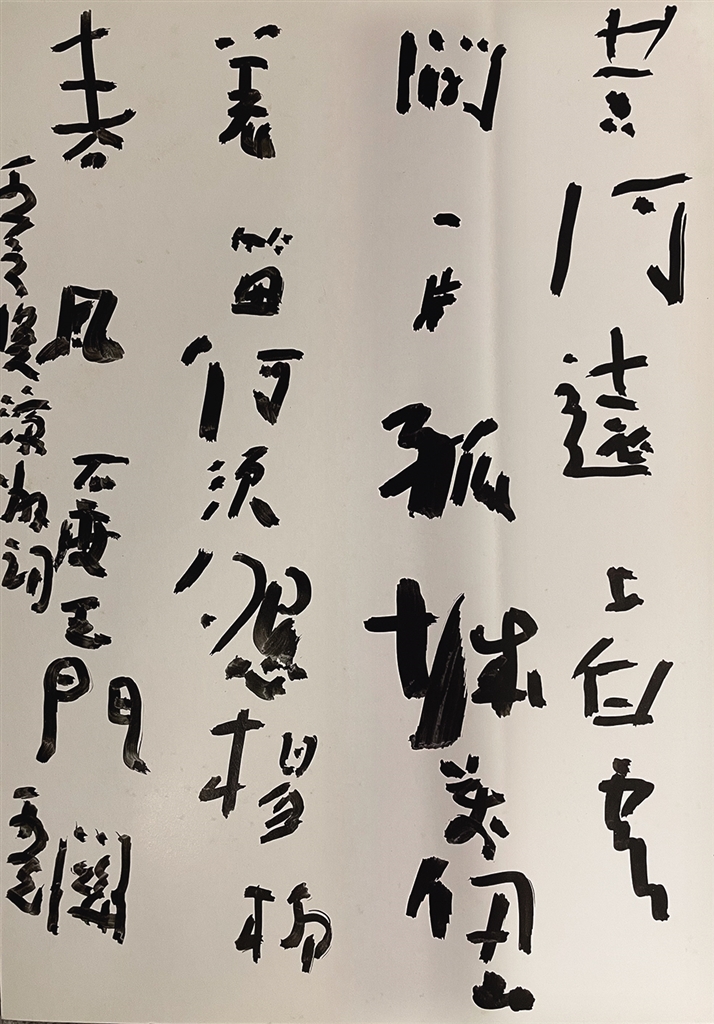 黄河遠上白雲
間一片孤城萬仞山
羌笛何須怨楊柳
春風不度玉門關
之渙涼州詞